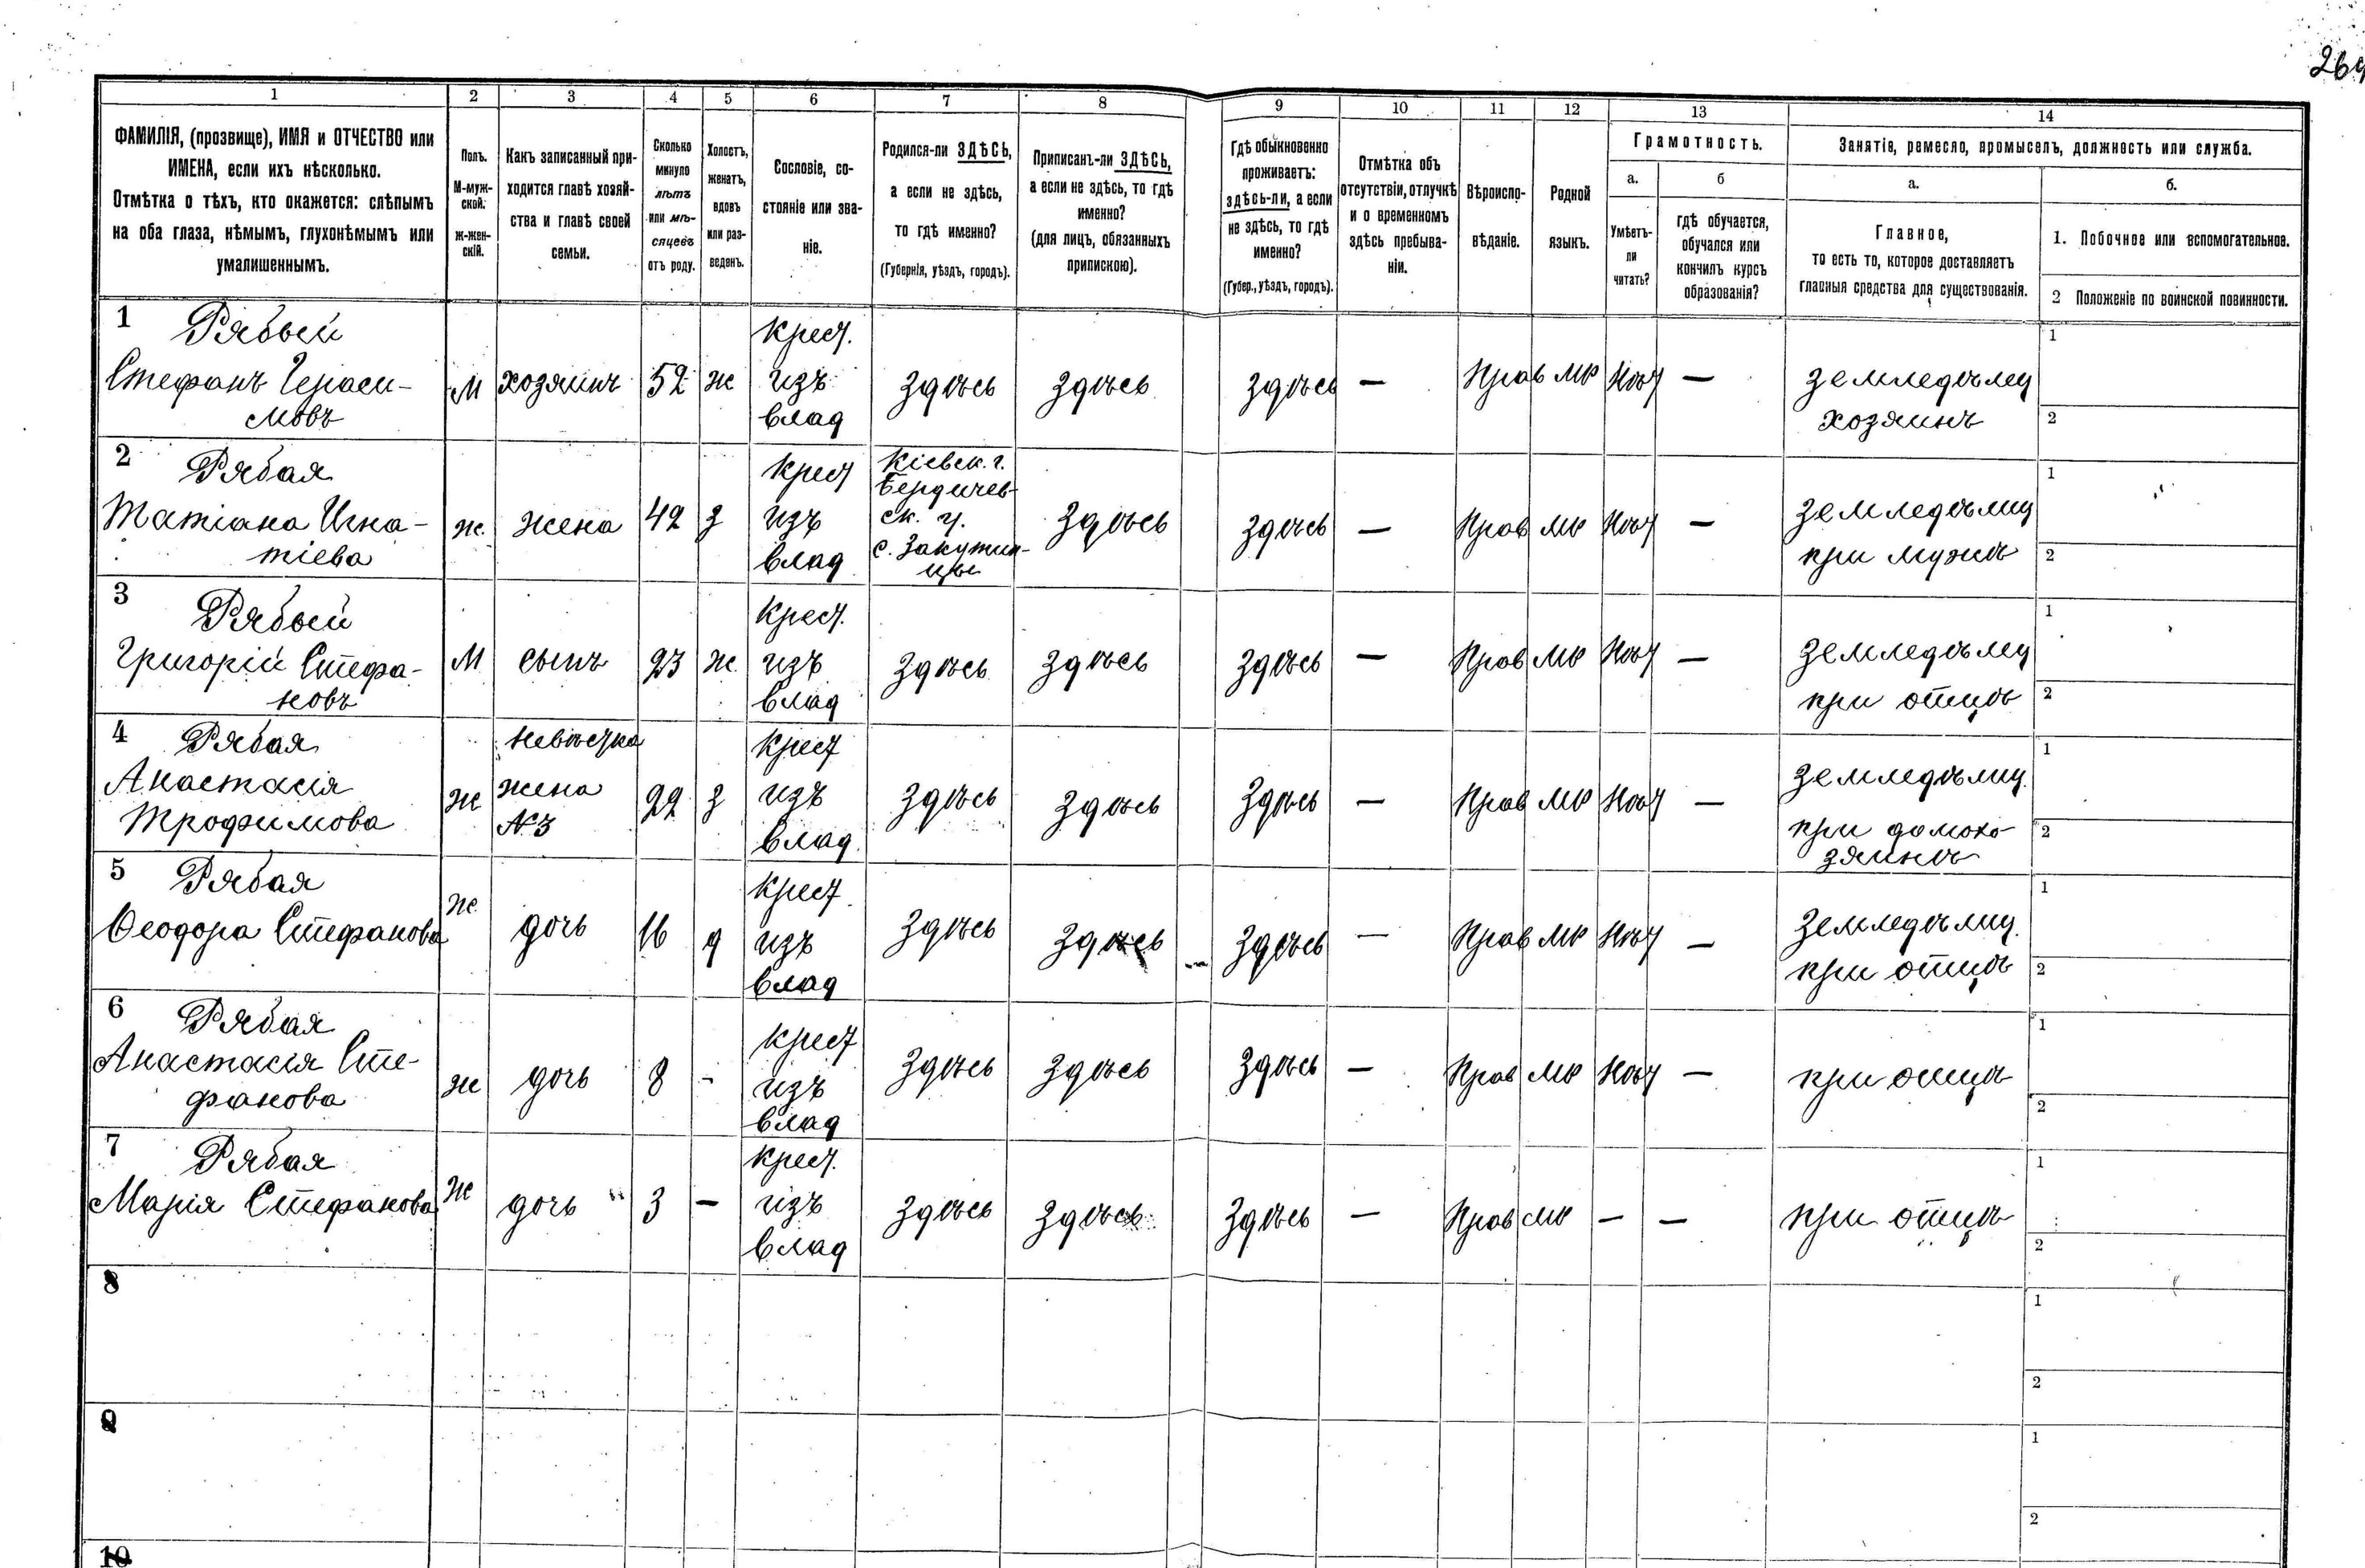 269
1 2 3 4 5 6 7 8 9 10 11 12 13 14
ФАМИЛІЯ, (прозвище), ИМЯ и ОТЧЕСТВО или
ИМЕНА, если ихъ нѣсколько.
Отмѣтка о тѣхъ, кто окажется: слѣпымъ
на оба глаза, нѣмымъ, глухонѣмымъ или
умалишеннымъ.
Полъ.
М-муж-
ской.
Ж-жен-
скій.
Какъ записанный при-
ходится главѣ хозяй-
ства и главѣ своей
семьи.
Сколько
минуло
лѣтъ
или мѣ-
сяцевъ
отъ роду.
Холостъ,
женатъ,
вдовъ
или раз-
веденъ.
Сословіе, со-
стояніе или зва-
ніе.
Родился-ли ЗДѢСЬ,
а если не здѣсь,
то гдѣ именно?
(Губернія, уѣздъ, городъ).
Приписанъ-ли ЗДѢСЬ,
а если не здѣсь, то гдѣ
именно?
(для лицъ, обязанныхъ
припискою).
Гдѣ обыкновенно
проживаетъ:
здѣсь-ли, а если
не здѣсь, то гдѣ
именно?
(Губер., уѣздъ, городъ).
Отмѣтка объ
отсутствіи, отлучкѣ
и о временномъ
здѣсь пребыва-
ніи.
Вѣроиспо-
вѣданіе.
Родной
языкъ.
Грамотность.
а.
Умѣетъ-
ли
читать?
б
гдѣ обучается,
обучался или
кончилъ курсъ
образованія?
Занятіе, ремесло, промыселъ, должность или служба.
а.
Главное,
то есть то, которое доставляетъ
главныя средства для существованія.
б.
1. Побочное или вспомогательное.
2 Положеніе по воинской повинности.
1 Рябый
Стефанъ Гераси-
мовъ
М
хозяинъ
52
ж
крест.
изъ
влад
здѣсь
здѣсь
здѣсь
—
Прав
мр
Нѣт
—
земледѣлец
хозяинъ
1
2
2 Рябая
Татіана Игна-
тіева
ж.
жена
42
з
крест
изъ
влад
Кіевск. г.
Бердичев-
ск. у.
с. Закутин-
цы
здѣсь
здѣсь
—
Прав
мр
Нѣт
—
земледѣлиц
при мужѣ
1
2
3 Рябый
Григорій Стефа-
новъ
М
сынъ
23
ж
крест.
изъ
влад
здѣсь
здѣсь
здѣсь
—
Прав
мр
Нѣт
—
земледѣлец
при отцѣ
1
2
4 Рябая
Анастасія
Трофимова
ж
невѣстка
жена
№ 3
22
з
крест
изъ
влад
здѣсь
здѣсь
здѣсь
—
Прав
мр
Нѣт
—
земледѣлиц.
при домохо-
зяинѣ
1
2
5 Рябая
Феодора Стефанова
ж
дочь
16
д
крест
изъ
влад
здѣсь
здѣсь
здѣсь
—
Прав
мр
Нѣт
—
земледѣлиц.
при отцѣ
1
2
6 Рябая
Анастасія Сте-
фанова
ж
дочь
8
-
крест
изъ
влад
здѣсь
здѣсь
здѣсь
—
Прав
мр
Нѣт
—
при отцѣ
1
2
7 Рябая
Марія Стефанова
ж
дочь
3
—
крест.
изъ
влад
здѣсь
здѣсь
здѣсь
—
Прав
мр
—
—
при отцѣ
1
2
8
1
2
9
1
2
10